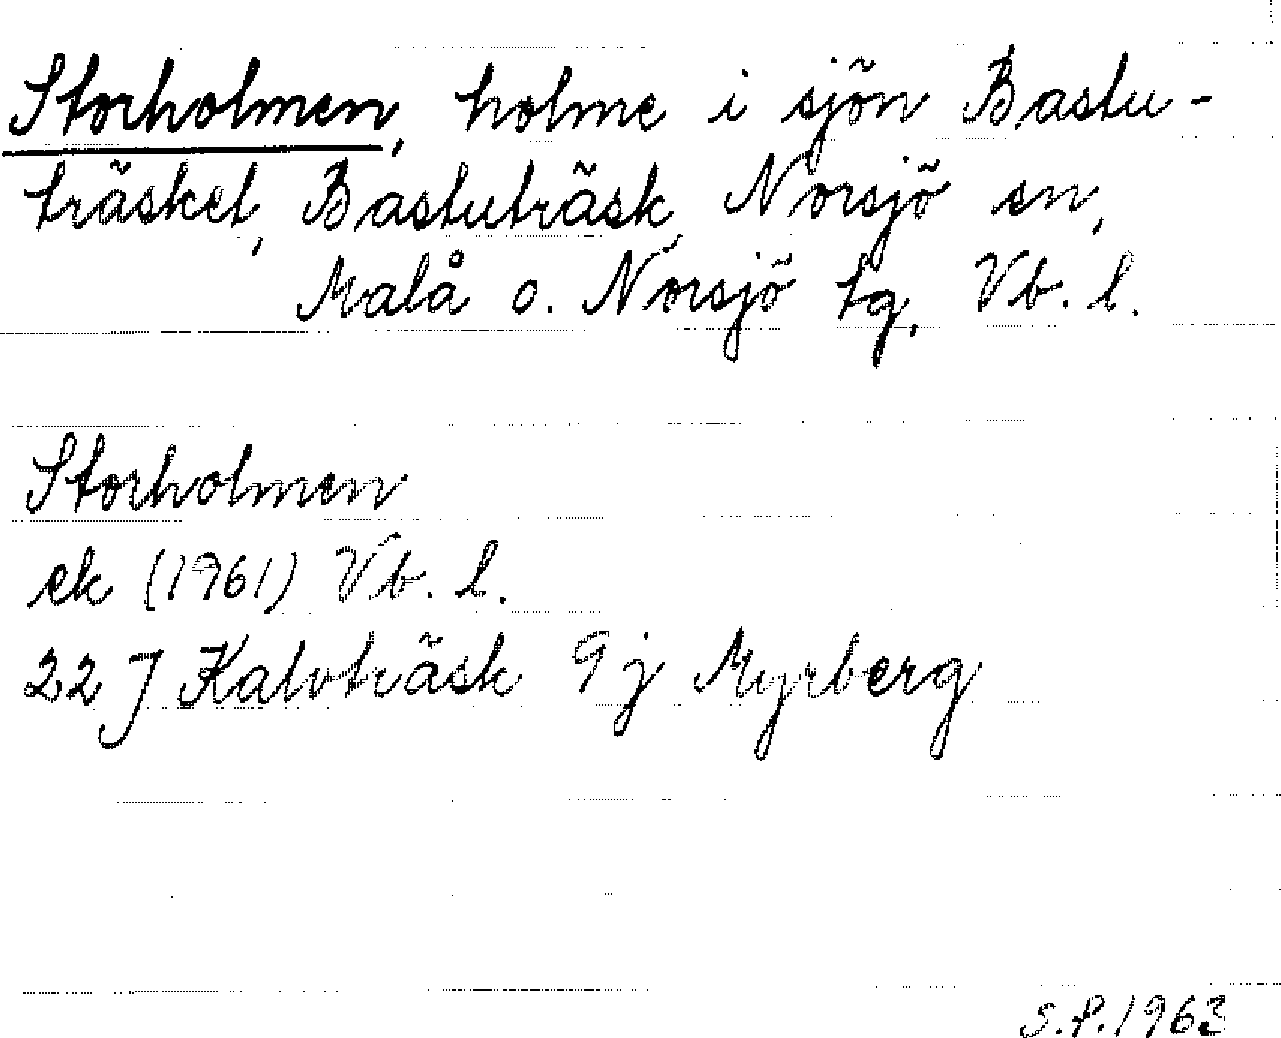 Storholmen, holme i sjön Bastu-
träsket, Bastuträsk, Norsjö sn,
Malå o. Norsjö tg, Vb. l.
Storholmen
ek (1961) Vb. l.
22 J Kalvträsk 9 j Myrberg
S.P. 1963